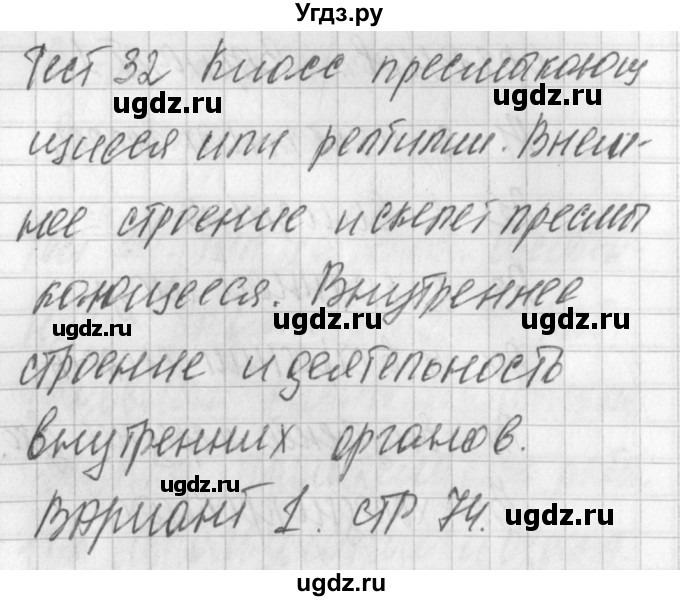 Угдз.ру
Тест 32 Класс пресмыкающ
ugdz.ru ugdz.ru
щиеся или рептилии. Внеш-
нее строение и скелет пресмы
кающееся. Внутреннее
ugdz.ru ugdz.ru ugdz.ru
строение и деятельность
внутренних органов.
ugdz.ru
Вариант 1. стр 74.
ugdz.ru
ugdz.ru